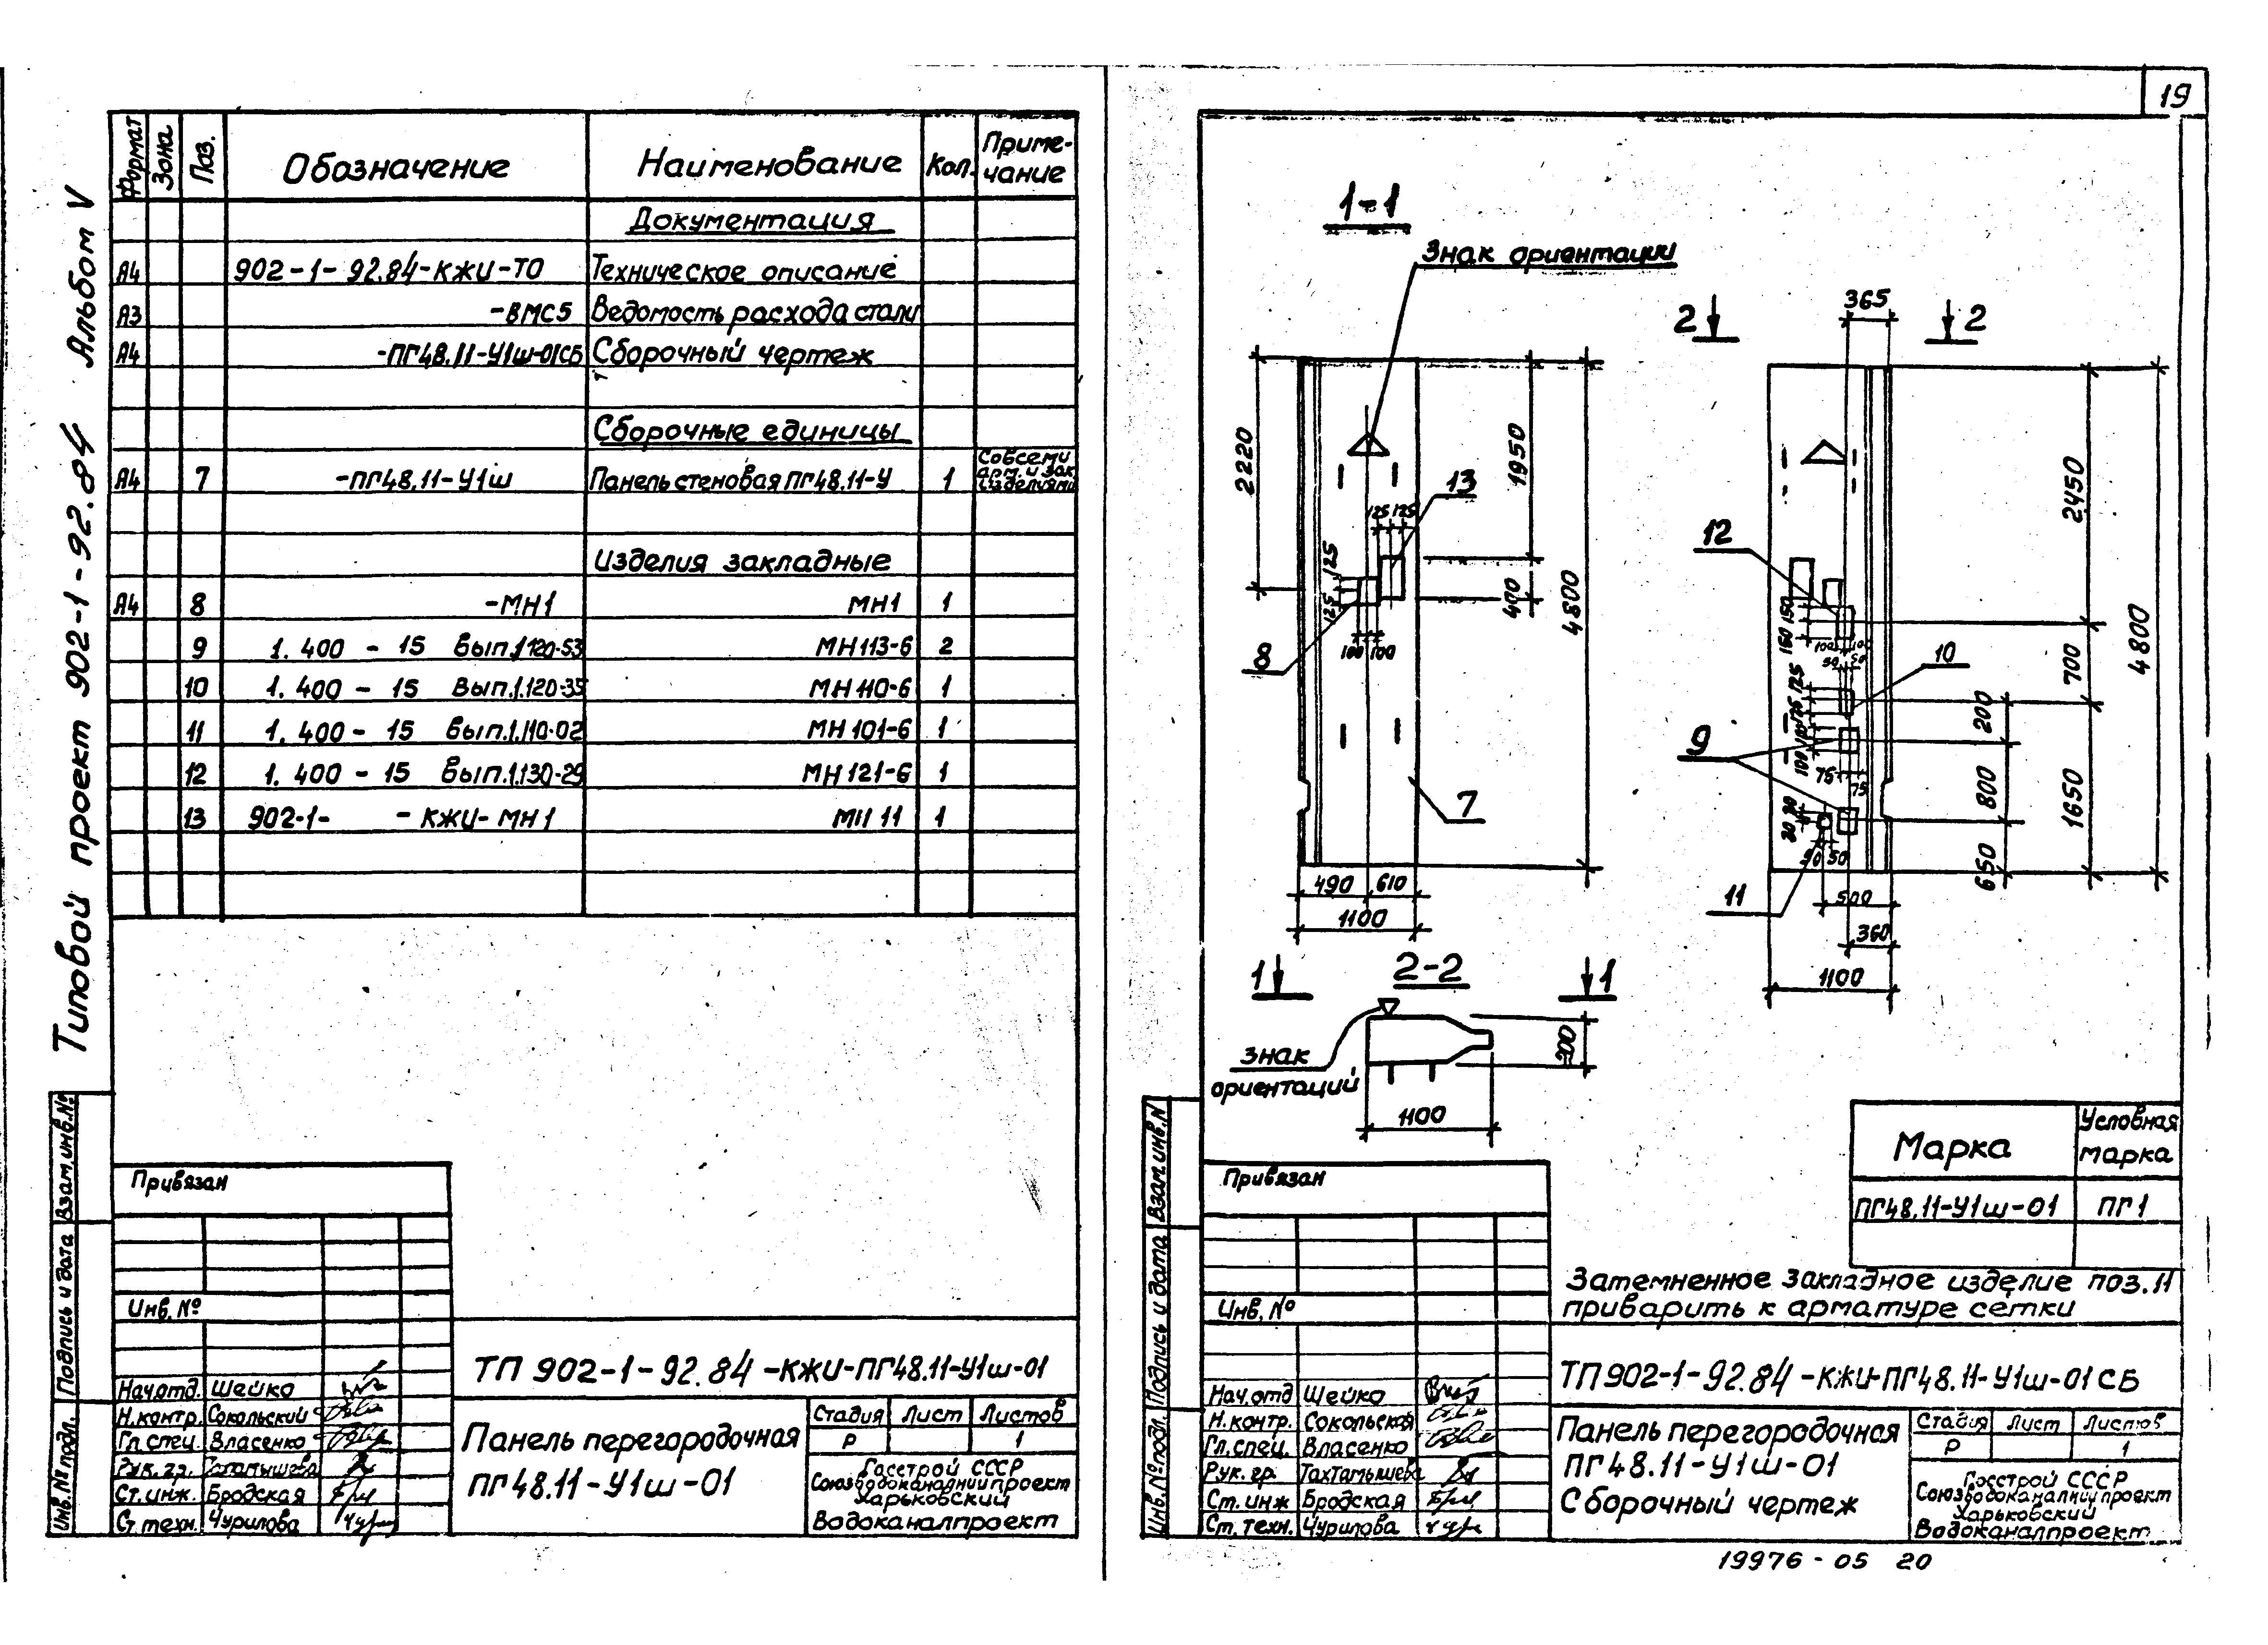 Типовой проект 902-1-92.84 Альбом V
Формат Зона Поз. Обозначение Наименование Кол. Приме-
чание
Документация
А4 902-1-92.84-КЖИ-ТО Техническое описание
А3 -ВМС5 Ведомость расхода стали
А4 -ПГ48.11-У1ш-01СБ Сборочный чертеж
Сборочные единицы
А4 7 -ПГ48.11-У1ш Панель стеновая ПГ48.11-У 1 Со всеми
арм. и зак.
изделиями
Изделия закладные
А4 8 -МН1 МН1 1
9 1.400-15 Вып.1.120-53 МН113-6 2
10 1.400-15 Вып.1.120-35 МН110-6 1
11 1.400-15 Вып.1.110-02 МН101-6 1
12 1.400-15 Вып.1.130-29 МН121-6 1
13 902-1- -КЖИ-МН1 МН 11 1
Привязан
Инв. №
Взам.инв.№
Подпись и дата
Инв.№ подл.
Нач.отд. Шейко
Н.контр. Сокольский
Гл.спец. Власенко
Рук.гр. Тахтамышева
Ст.инж. Бродская
Ст.техн. Чурилова
ТП 902-1-92.84-КЖИ-ПГ48.11-У1ш-01
Панель перегородочная
ПГ48.11-У1ш-01
Стадия Лист Листов
Р 1
Госстрой СССР
Союзводоканалниипроект
Харьковский
Водоканалпроект
19
1-1
Знак ориентации
2220
1950
400
4800
125 125
125
125
100 100
13
8
7
490 610
1100
2 2
365
2450
700
1650
4800
200
800
650
12
10
9
11
150
150
100 100
50 50
125
175
100
100
75
75
20 20
50 50
500
360
1100
1 1
2-2
Знак
ориентаций
300
1100
Марка Условная
марка
ПГ48.11-У1ш-01 ПГ1
Затемненное закладное изделие поз.11
приварить к арматуре сетки
Привязан
Инв. №
Взам.инв.№
Подпись и дата
Инв.№ подл.
Нач.отд Шейко
Н.контр. Сокольская
Гл.спец. Власенко
Рук.гр. Тахтамышева
Ст.инж Бродская
Ст.техн. Чурилова
ТП 902-1-92.84-КЖИ-ПГ48.11-У1ш-01СБ
Панель перегородочная
ПГ48.11-У1ш-01
Сборочный чертеж
Стадия Лист Листов
Р 1
Госстрой СССР
Союзводоканалниипроект
Харьковский
Водоканалпроект
19976-05 20